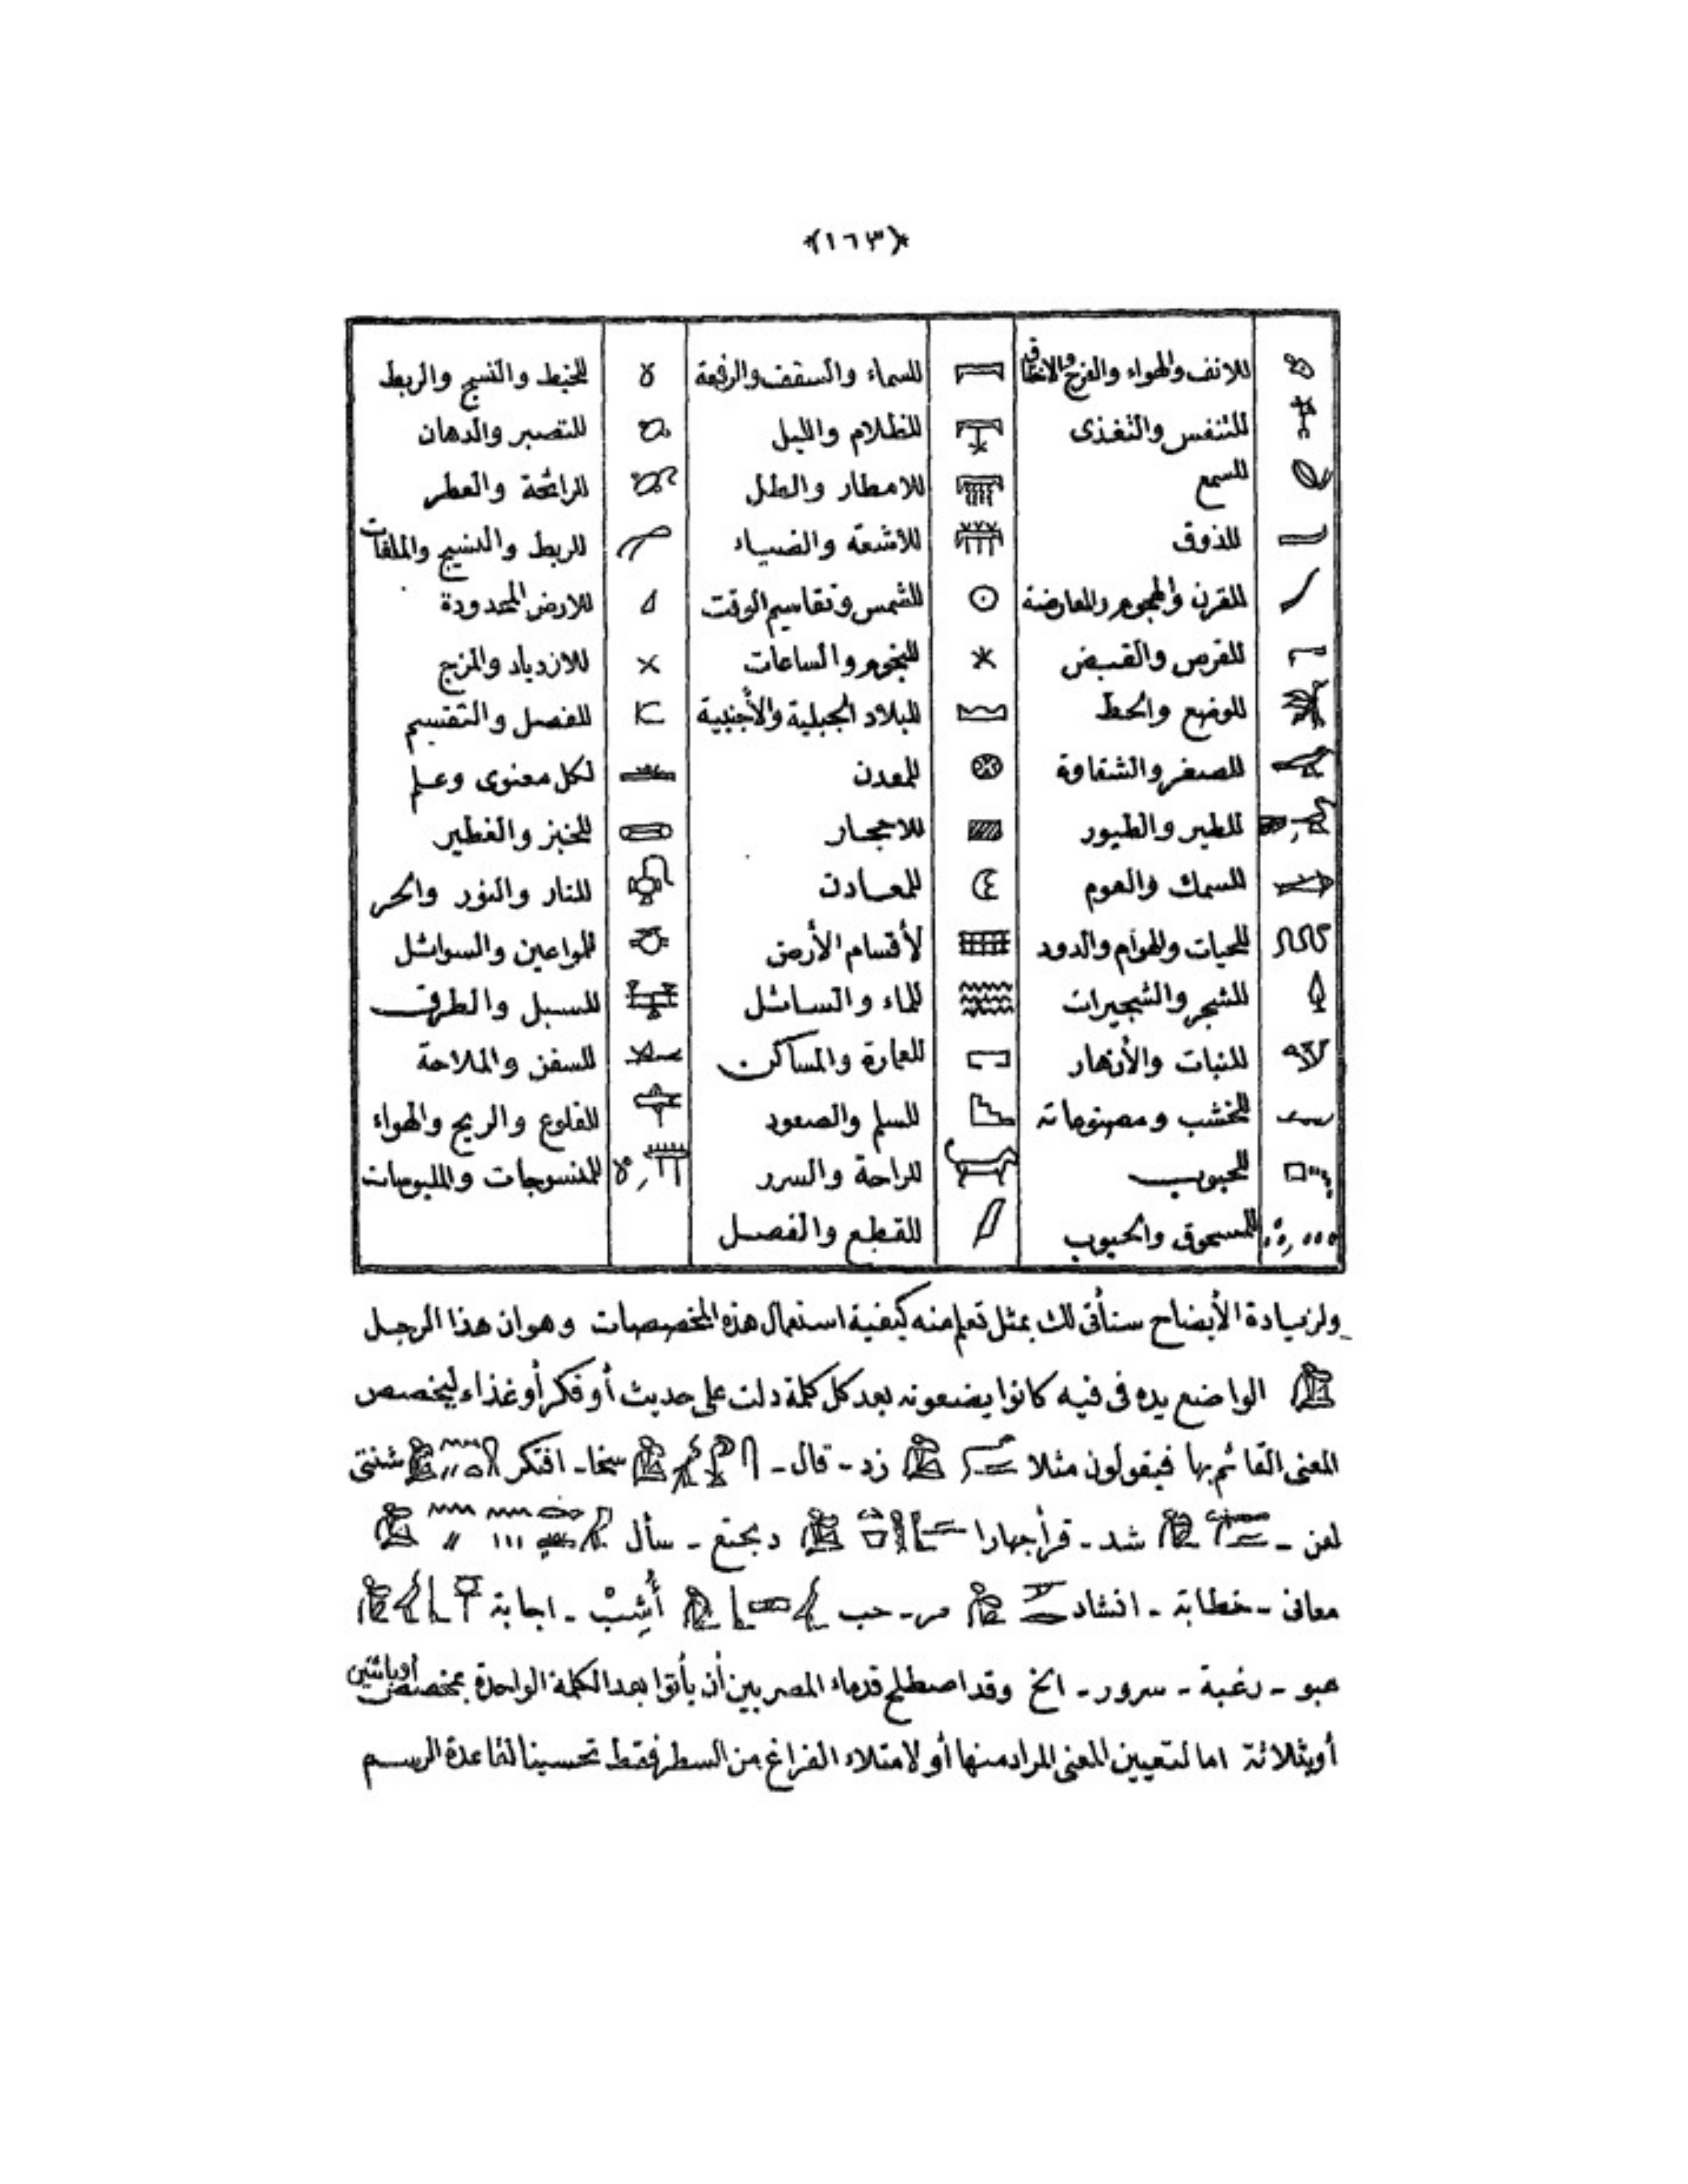 ﴿١٦٣﴾
للانف والهواء والفرح والاختناق للسماء والسقف والرفعة للخيط والنسيج والربط
للتنفس والتغذى للظلام والليل للتصبر والدهان
للسمع للامطار والطل للرائحة والعطر
للذوق للاشعة والضياء للربط والنسيج والملفات
للقرن والهجوم والمعارضة للشمس وتقاسيم الوقت للارض المحدودة
للقرص والقبض للنجوم والساعات للازدياد والمزج
للوضع والحط للبلاد الجبلية والأجنبية للفصل والتقسيم
للصغر والشقاوة للمدن لكل معنوى وعلم
للطير والطيور للاحجار للخبز والفطير
للسمك والعوم للمعادن للنار والنور والحر
للحيات والهوام والدود لأقسام الأرض للمواعين والسوائل
للشجر والشجيرات للماء والسائل للسبل والطرق
للنبات والأزهار للعمارة والمساكن للسفن والملاحة
للخشب ومصنوعاته للسلم والصعود للقلوع والريح والهواء
للحبوب للراحة والسرر للمنسوجات والملبوسات
للمسحوق والحبوب للقطع والفصل
ولزيادة الأيضاح سنأتى لك بمثل تعلم منه كيفية استعمال هذه المخصصات وهو ان هذا الرجل
الواضع يده فى فيه كانوا يضعونه بعد كل كلمة دلت على حديث أو فكر أو غذاء ليخصص
المعنى القائم بها فيقولون مثلا زد - قال - سخا - افتكر شنتى
لعن - شد - قرأ جهارا دبحتع - سأل
معانى - خطابة - انشاد مر - حب أشب - اجابة
هبو - رغبة - سرور - الخ وقد اصطلح قدماء المصريين أن يأتوا بعد الكلمة الواحدة بمخصص أو باثنين
أو بثلاثة اما لتعيين المعنى المراد منها أو لامتلاء الفراغ من السطر فقط تحسينا لقاعدة الرسم